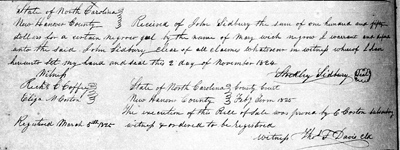 State of North Carolina
New Hanover County } Received of John Sidbury the sum of one hundred and fifty
dollars for a certain negroe gal by the name of Mary wich negroe I warrant and
unto the said John Sidbury clear of all claims whatsoever in witness whereof I have
hereunto set my hand and seal this 2 day of November 1824
Witness Sidbury Seal
Eliza M Coston State of North Carolina } County Court
New Hanover County } Feby Term 1825
The execution of this Bill of Sale was proved by E Coston
Registered March 5th 1825 witness & ordered to be registered
Witness Thos F Davis Clk